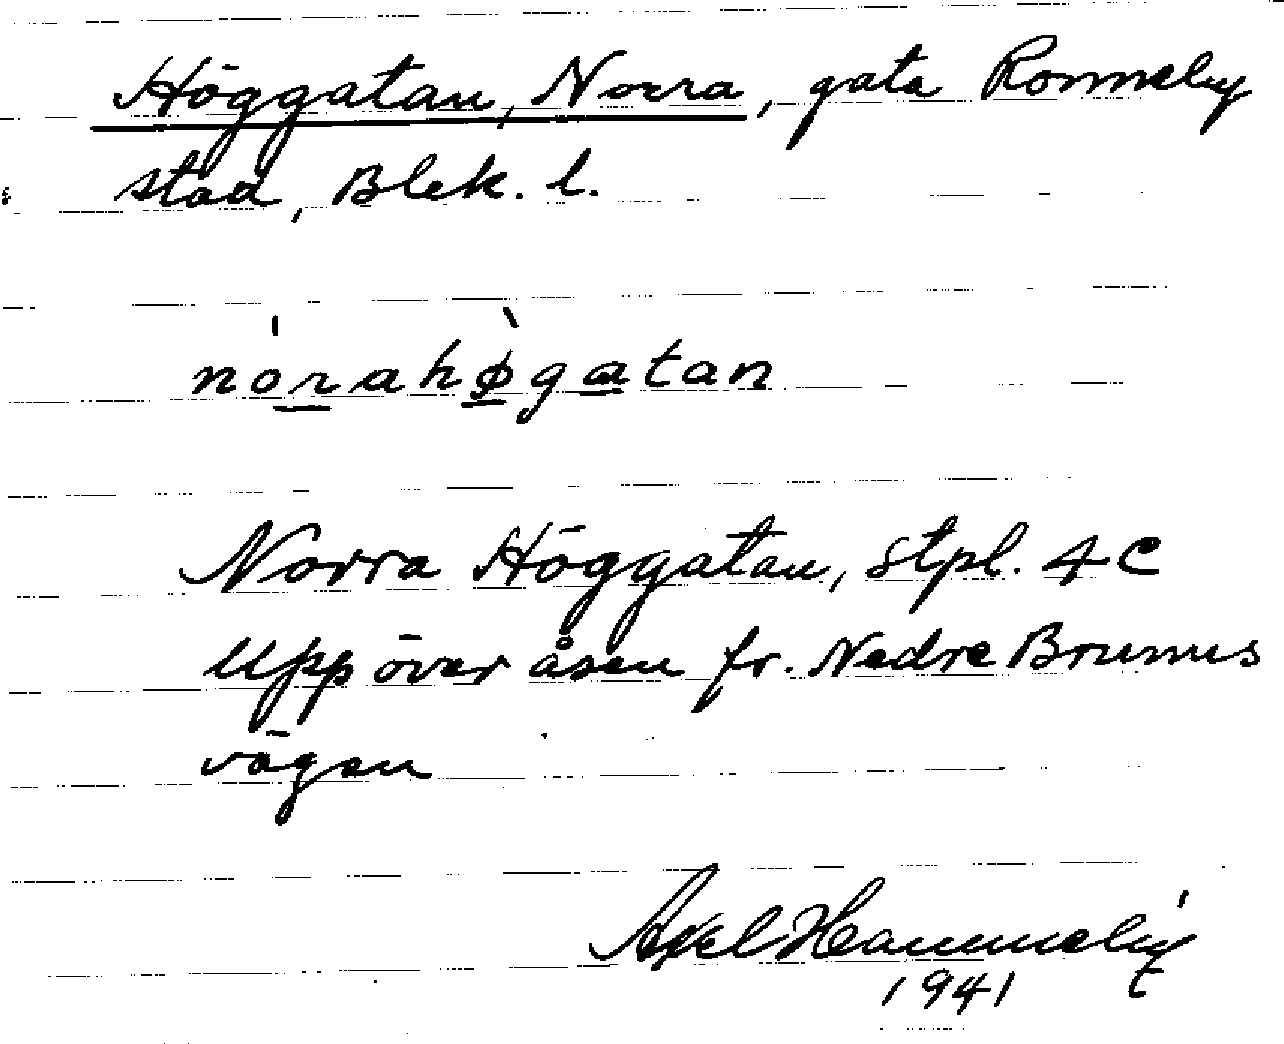 Höggatan, Norra, gata Ronneby
stad, Blek. l.
nórahø̀gatan
Norra Höggatan, stpl. 4 C
Upp över åsen fr. Nedre Brunns
vägen
Axel
1941